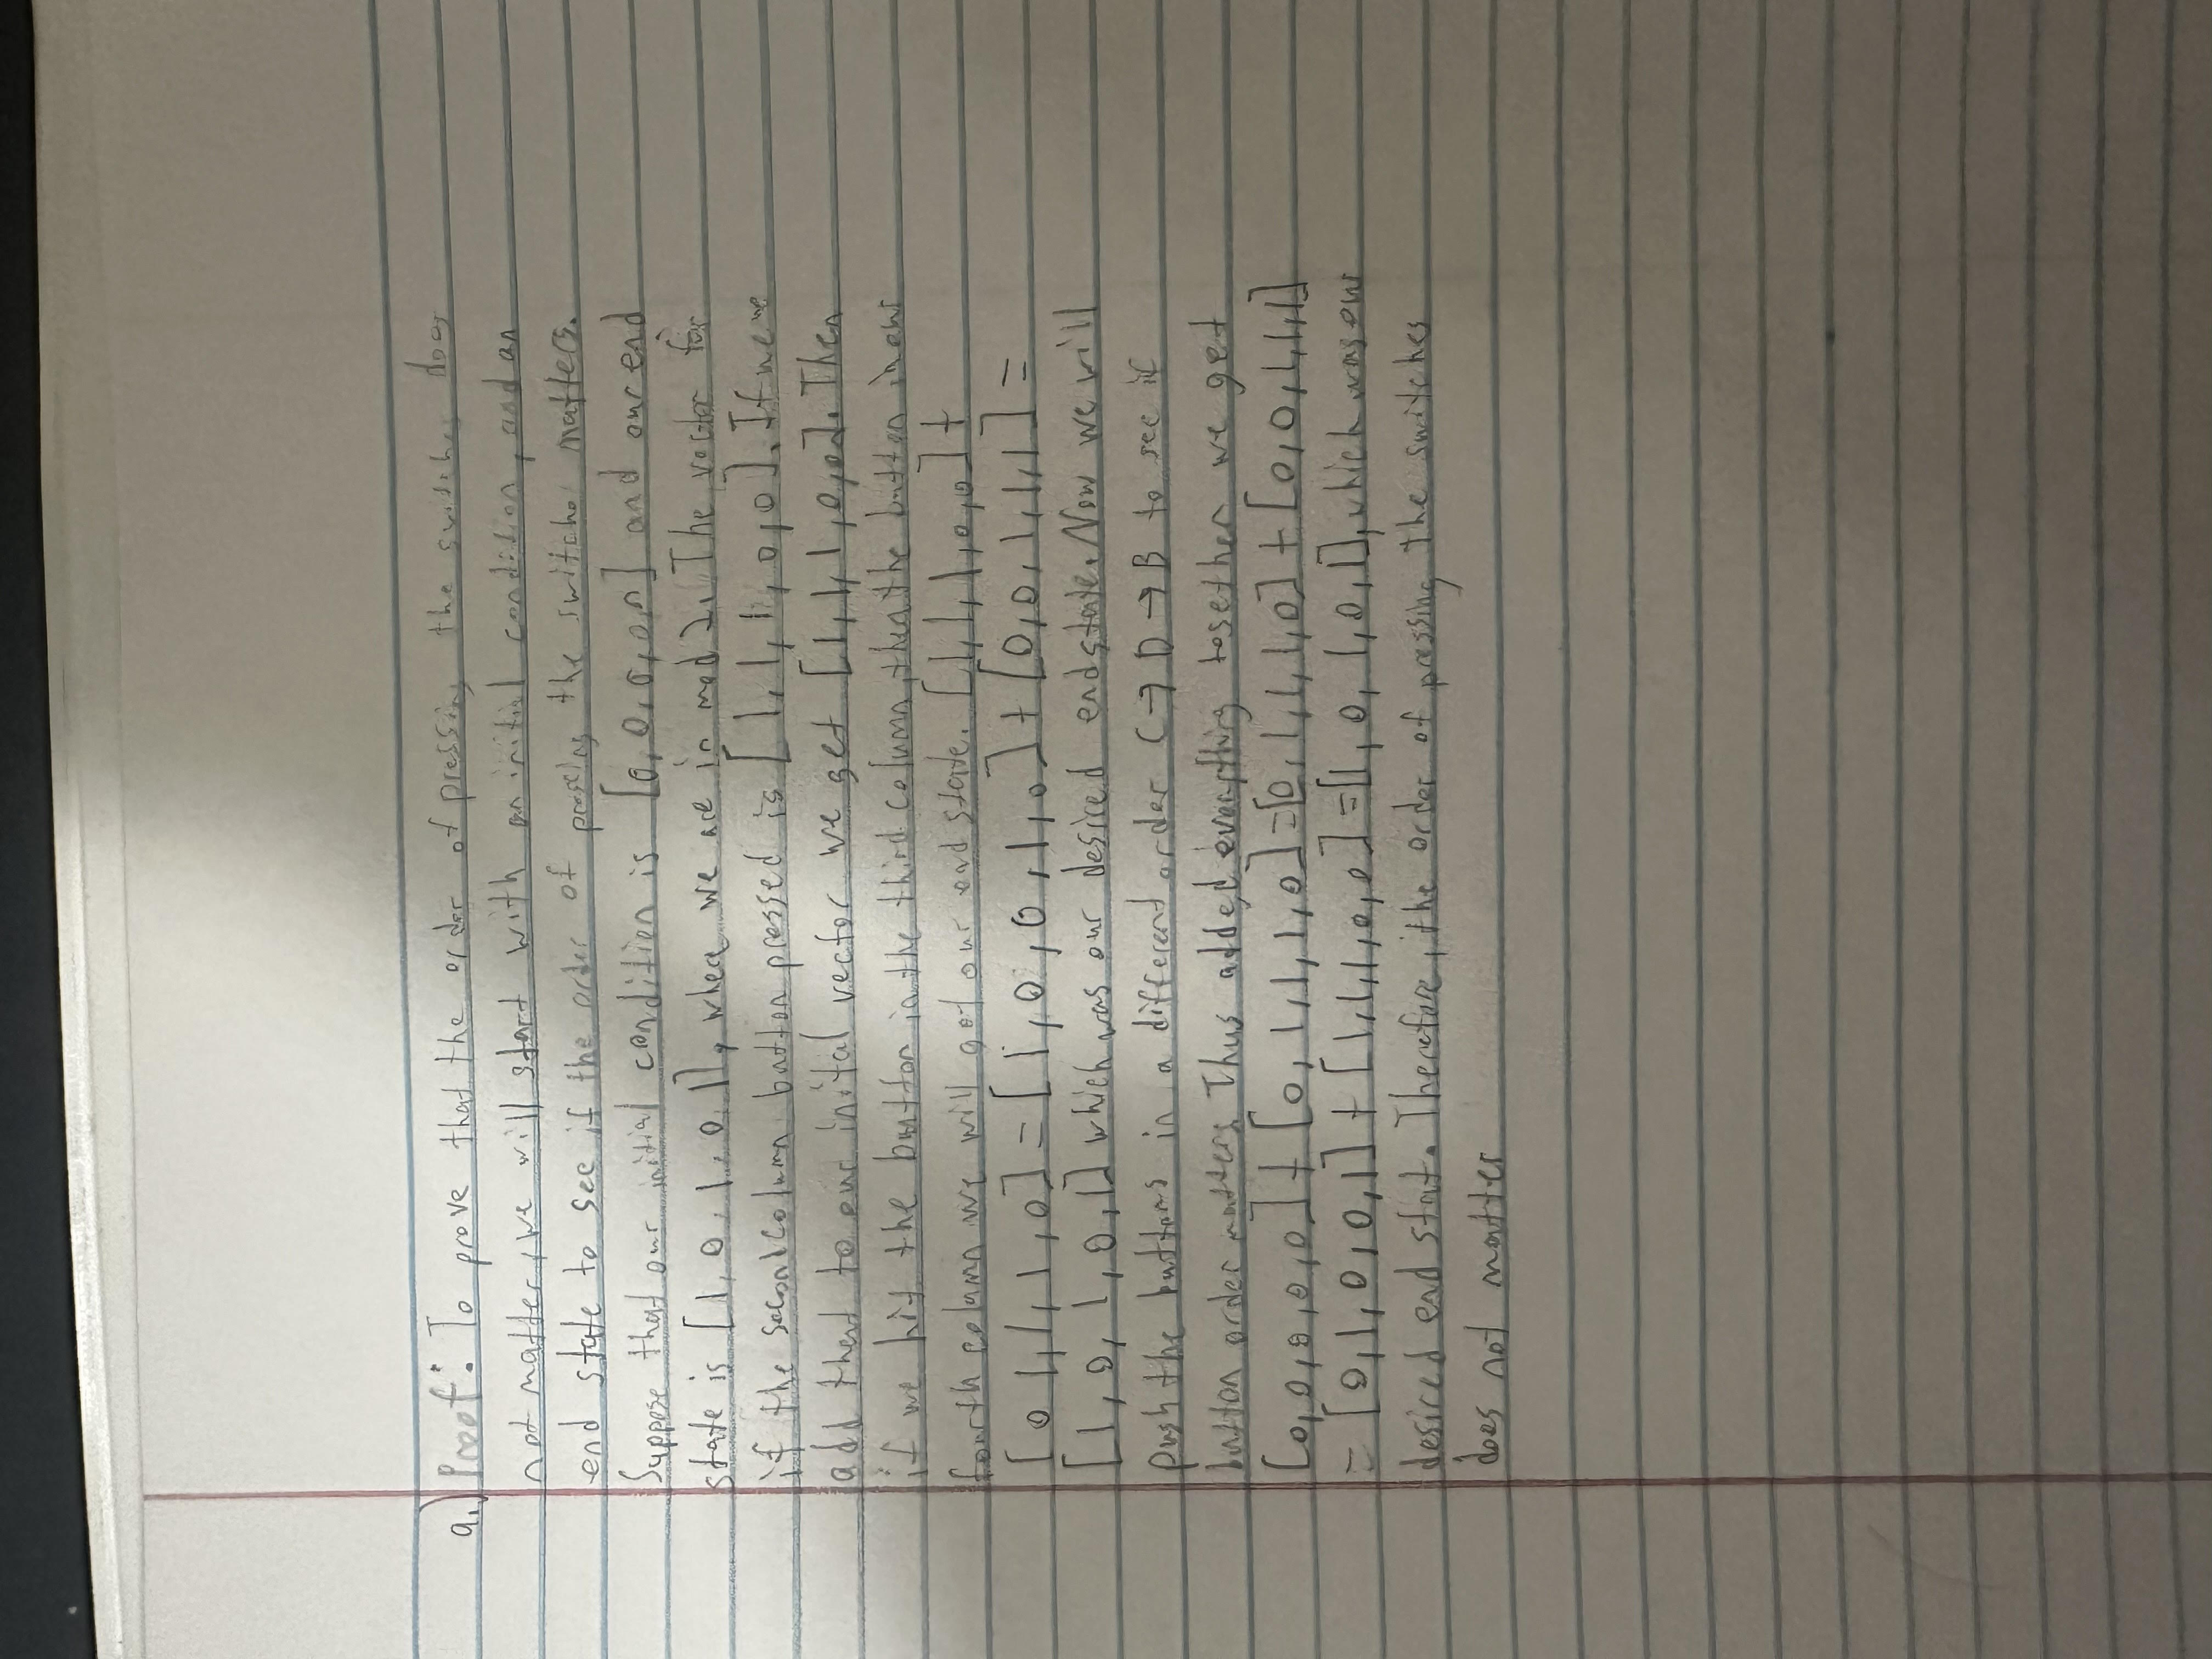 a.) Proof: To prove that the order of pressing the switches does
not matter, we will start with an initial condition, and an
end state to see if the order of pressing the switches matters.
Suppose that our initial condition is [0,0,0,0] and our end
state is [1,0,1,0,1], when we are in mod 2. The vector for
if the second column button pressed is [1,1,1,0,0]. If we
add that to our initial vector we get [1,1,1,0,0]. Then
if we hit the button in the third column, then the button in our
fourth column we will get our end state. [1,1,1,0,0]+
[0,1,1,1,0]=[1,0,0,1,0]+[0,0,1,1,1]=
[1,0,1,0,1] which was our desired end state. Now we will
push the buttons in a different order C→D→B to see if
button order matters. Thus added everything together we get
[0,0,0,0,0]+[0,1,1,1,0]=[0,1,1,1,0]+[0,0,1,1,1]
=[0,1,0,0,1]+[1,1,1,0,0]=[1,0,1,0,1], which was our
desired end state. Therefore, the order of pressing the switches
does not matter